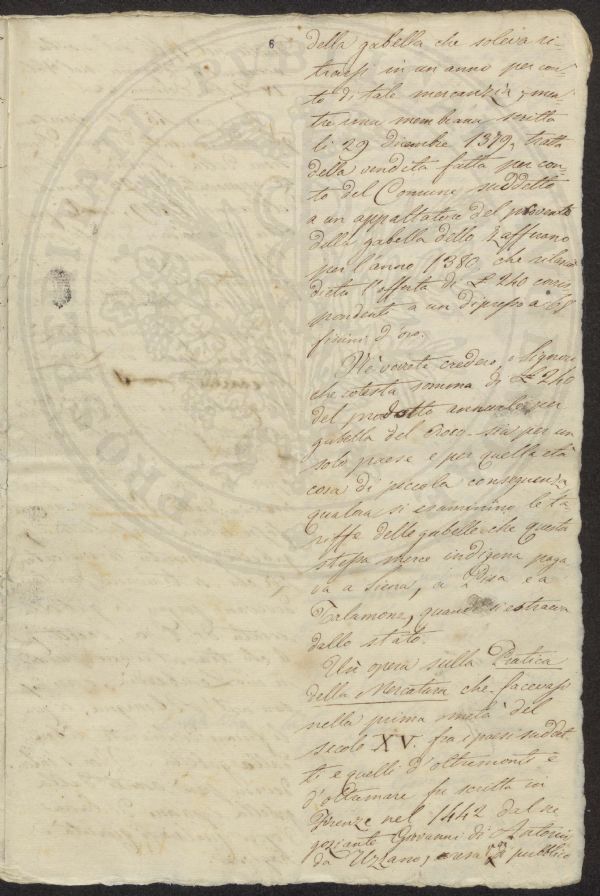 6
della gabella che soleva ri-
trarsi in un anno per con-
to di tale mercanzia, men-
tre una membrana scritta
li 29 Dicembre 1379, tratta
della vendita fatta per con-
to del Comune suddetto
a un appaltatore del provento
della gabella dello Zafferano
per l'anno 1380 che rilasciò
dietro l'offerta di £ 240 corris-
pondenti a un dipresso a 68
fiorini d'oro.
Nè vorrete credere, o Signori
che cotesta somma di £ 240
del prodotto annuale per
gabella del Croco sia per un
solo paese e per quella età
cosa di piccola conseguenza
qualora si esaminino le ta
riffe delle gabelle che questa
stessa merce indigena paga
va a Siena, a Pisa e a
Talamone, quando si estraeva
dallo stato
Un'opera sulla Pratica
della Mercatura che facevasi
nella prima metà del
secolo XV. fra i paesi suddet
ti e quelli d'oltremonte e
d'oltremare fu scritta in
Firenze nel 1442 dal ne
goziante Giovanni di Antonio
da Uzzano, pubblico